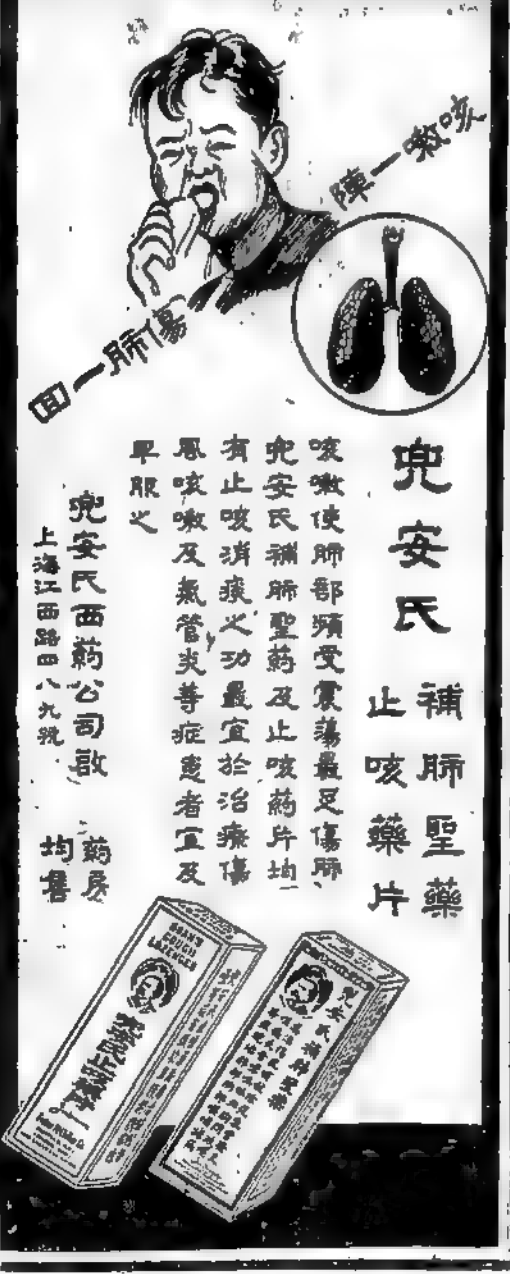 咳嗽一陣
傷肺一回
兜安氏
補肺聖藥
止咳藥片
咳嗽使肺部頻受震蕩最足傷肺、
兜安氏補肺聖葯及止咳葯片均
有止咳消痰之功最宜於治療傷
風咳嗽及氣管炎等症患者宜及
早服之
兜安氏西葯公司啟
上海江西路四八九號
葯房
均售
DOAN'S
COUGH
LOZENGES
兜安氏補肺聖藥